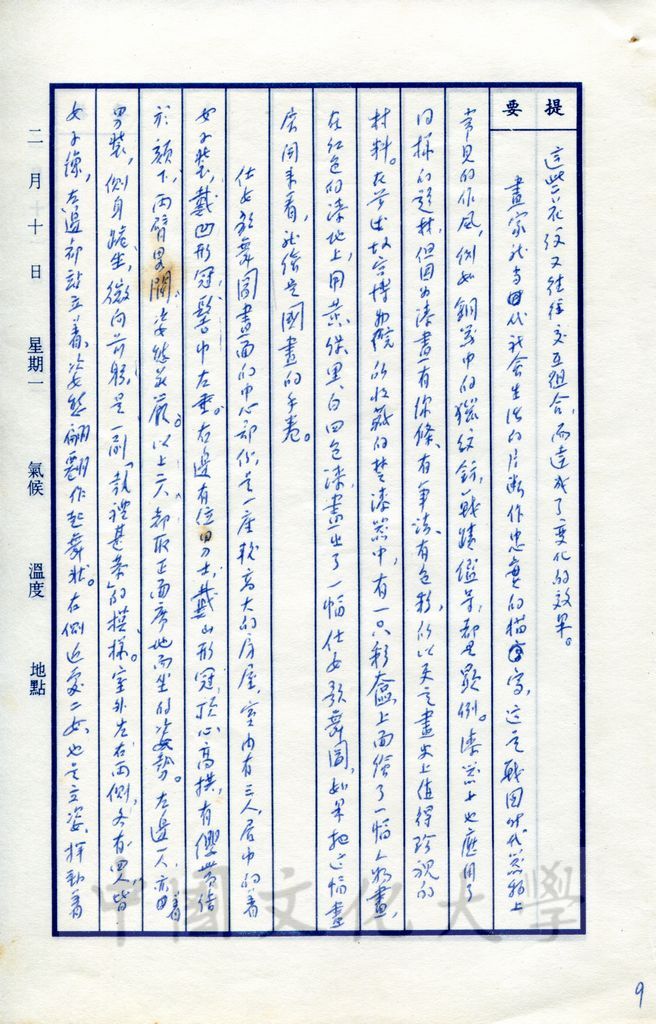 提要
這些花紋又往往交互組合，而達成了变化的效果。
畫家就當时代社会生活的片断作忠實的描寫，這是戰国时代器物上
常見的作風，例如銅器中的獵紋鈁，戰蹟鑑等，都是顯例。漆器上也應用了
同樣的題材，但因为漆畫有線條、有筆法、有色彩，所以更是畫史上值得珍視的
材料。在
故宫博物院所收藏的楚漆器中，有一只彩奩，上面绘了一幅人物畫，
在紅色的漆地上，用黄、绿、黑、白四色漆，畫出了一幅仕女歌舞圖，如果把這幅畫
展開来看，就像是國畫的手卷。
仕女歌舞圖畫面的中心部份，是一座較高大的房屋，室内有三人，居中的着
女子装，戴凹形冠，髻巾左垂。右邊有位男士，戴山形冠，顶心高拱，有纓帶結
於頷下，两臂
姿態莊嚴。以上二人，都取正面席地而坐的姿勢。左邊一人亦着
男装，側身跪坐，微向前躬，是一副「執禮甚恭」的模樣。室外左右兩側，各有四人，皆
女子像，左邊却站立着，姿態翩翩作起舞狀。右側近處二女，也是立姿，揮動着
二月十日 星期一 氣候 溫度 地點
中國文化大學
9